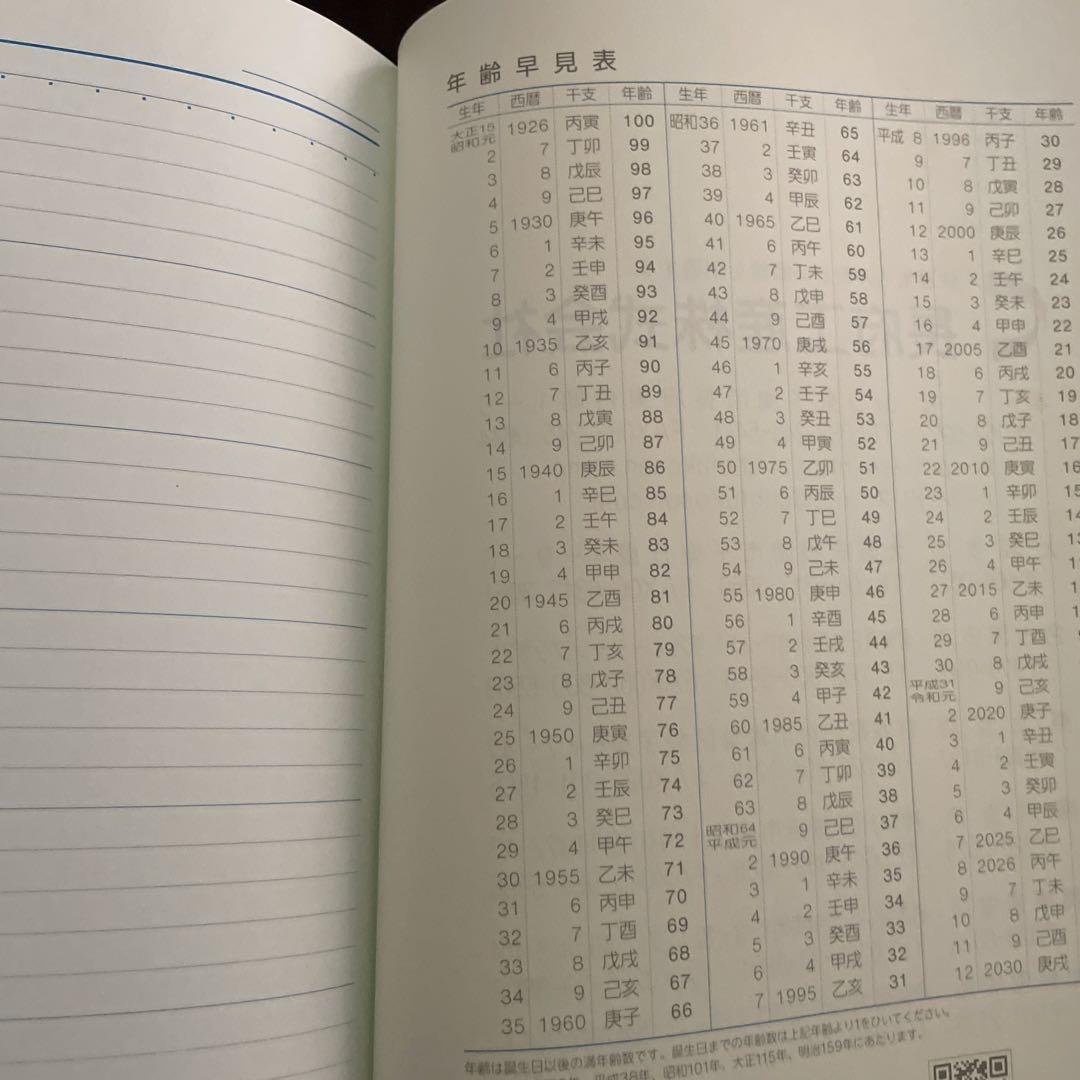 年齢早見表
生年 西暦 干支 年齢 生年 西暦 干支 年齢 生年 西暦 干支 年齢
大正15
昭和元 1926 丙寅 100 昭和36 1961 辛丑 65 平成 8 1996 丙子 30
2 7 丁卯 99 37 2 壬寅 64 9 7 丁丑 29
3 8 戊辰 98 38 3 癸卯 63 10 8 戊寅 28
4 9 己巳 97 39 4 甲辰 62 11 9 己卯 27
5 1930 庚午 96 40 1965 乙巳 61 12 2000 庚辰 26
6 1 辛未 95 41 6 丙午 60 13 1 辛巳 25
7 2 壬申 94 42 7 丁未 59 14 2 壬午 24
8 3 癸酉 93 43 8 戊申 58 15 3 癸未 23
9 4 甲戌 92 44 9 己酉 57 16 4 甲申 22
10 1935 乙亥 91 45 1970 庚戌 56 17 2005 乙酉 21
11 6 丙子 90 46 1 辛亥 55 18 6 丙戌 20
12 7 丁丑 89 47 2 壬子 54 19 7 丁亥 19
13 8 戊寅 88 48 3 癸丑 53 20 8 戊子 18
14 9 己卯 87 49 4 甲寅 52 21 9 己丑 17
15 1940 庚辰 86 50 1975 乙卯 51 22 2010 庚寅 16
16 1 辛巳 85 51 6 丙辰 50 23 1 辛卯 15
17 2 壬午 84 52 7 丁巳 49 24 2 壬辰 14
18 3 癸未 83 53 8 戊午 48 25 3 癸巳
19 4 甲申 82 54 9 己未 47 26 4 甲午
20 1945 乙酉 81 55 1980 庚申 46 27 2015 乙未
21 6 丙戌 80 56 1 辛酉 45 28 6 丙申
22 7 丁亥 79 57 2 壬戌 44 29 7 丁酉
23 8 戊子 78 58 3 癸亥 43 30 8 戊戌
24 9 己丑 77 59 4 甲子 42 平成31
令和元 9 己亥
25 1950 庚寅 76 60 1985 乙丑 41 2 2020 庚子
26 1 辛卯 75 61 6 丙寅 40 3 1 辛丑
27 2 壬辰 74 62 7 丁卯 39 4 2 壬寅
28 3 癸巳 73 63 8 戊辰 38 5 3 癸卯
29 4 甲午 72 昭和64
平成元 9 己巳 37 6 4 甲辰
30 1955 乙未 71 2 1990 庚午 36 7 2025 乙巳
31 6 丙申 70 3 1 辛未 35 8 2026 丙午
32 7 丁酉 69 4 2 壬申 34 9 7 丁未
33 8 戊戌 68 5 3 癸酉 33 10 8 戊申
34 9 己亥 67 6 4 甲戌 32 11 9 己酉
35 1960 庚子 66 7 1995 乙亥 31 12 2030 庚戌
年齢は誕生日以後の満年齢数です。誕生日までの年齢数は上記年齢より1をひいてください。
平成38年、昭和101年、大正115年、明治159年にあたります。